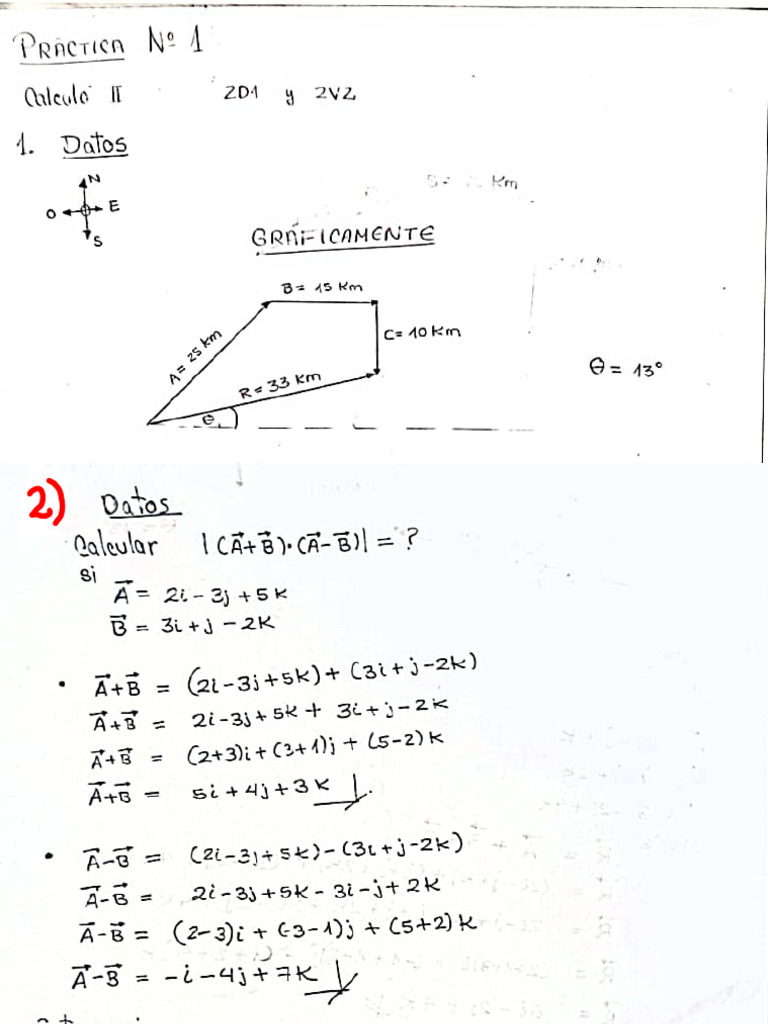 PRÁCTICA Nº 1
Calculo II 2D1 y 2V2
1. Datos
N
O E
S
Km
GRÁFICAMENTE
B = 15 Km
A = 25 km
C = 10 Km
R = 33 Km
θ = 13°
θ
2) Datos
Calcular |(A⃗+B⃗)·(A⃗-B⃗)| = ?
si
A⃗ = 2i - 3j + 5k
B⃗ = 3i + j - 2k
• A⃗+B⃗ = (2i-3j+5k) + (3i+j-2k)
A⃗+B⃗ = 2i-3j+5k + 3i+j-2k
A⃗+B⃗ = (2+3)i + (3+1)j + (5-2)k
A⃗+B⃗ = 5i + 4j + 3k
• A⃗-B⃗ = (2i-3j+5k) - (3i+j-2k)
A⃗-B⃗ = 2i-3j+5k - 3i-j+2k
A⃗-B⃗ = (2-3)i + (-3-1)j + (5+2)k
A⃗-B⃗ = -i - 4j + 7k